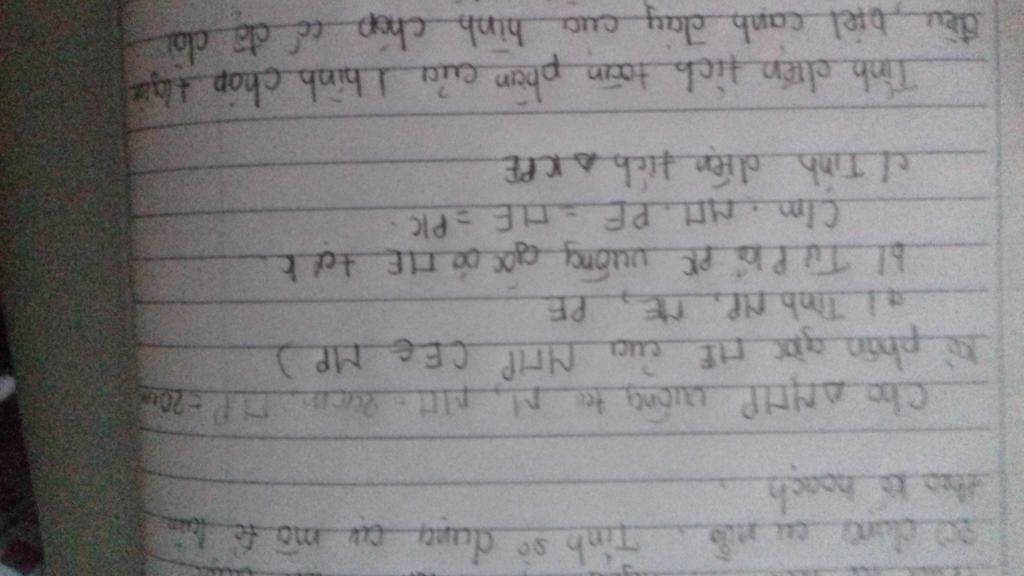 số dụng cụ mỗi . Tính số dụng cụ mỗi tổ làm
theo kế hoạch .
Cho Δ MNP vuông tại M, MN = cm, NP = 20cm
kẻ phân giác NE của MNP ( E ∈ MP )
a/ Tính MP, ME, PE
b/ Từ P kẻ PK vuông góc NE tại K.
C/m . MN. PE = NE = PK.
c/ Tính diện tích Δ KPE
Tính diện tích toàn phần của 1 hình chóp
đều, biết cạnh đáy của hình chóp có độ dài